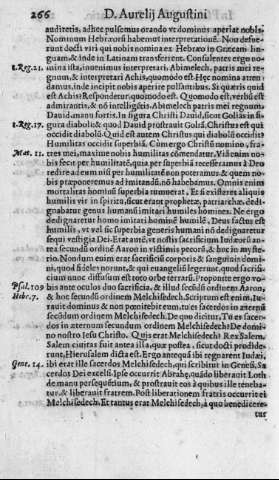 266 D. Aurelij Augustini
auditetis, adhec pulsemus orando vt dominus aperiat nobis.
Nominum Hebræorū habentur interpretationes. Non defue-
runt docti viri qui nobis nomina ex Hebræo in Græcam lin-
guam, & inde in Latinam transferrent. Consulentes ergo no-
1. Reg. 21. mina ista, inuenimus interpretari Abimelech, patris mei re-
gnum, & interpretari Achis, quomodo est? Hęc nomina atten-
damus, inde incipit nobis aperire pulsantibus. Si quæris quid
est Achis? Respondetur, quomodo est. Quomodo est, verbū est
admirantis, & nō intelligentis. Abimelech patris mei regnum,
Dauid manu fortis. In figura Christi Dauid, sicut Goliath est
1. Reg. 17. in figura diaboli: & quod Dauid prostrauit Goliā, Christus est qui
occidit diabolū. Quid est autem Christus qui diabolū occidit?
Humilitas occidit superbiā. Cum ergo Christū nomino, fra-
Mat. 11. tres mei, maxime nobis humilitas commendatur. Viā enim no-
bis fecit per humilitatē, quia per superbiā recesseramus à Deo
redire ad eum nisi per humilitatē non poteramus & quem no-
bis præponeremus ad imitandū nō habebamus. Omnis enim
mortalitas hominū superbia tumuerat. Et si existeret aliquis
humilis vir in spiritu, sicut erant prophetæ, patriarchæ, dedi-
gnabatur genus humanū imitari humiles homines. Ne ergo
dedignaretur homo imitari hominē humilē, Deus factus est
humilis, vt vel sic superbia generis humani nō dedignaretur
sequi vestigia Dei. Erat autē, vt nostis, sacrificium Iudæorū an-
tea secundū ordinē Aaron in victimis pecorū, & hoc in myste-
rio. Nondum enim erat sacrificiū corporis & sanguinis domi-
ni, quod fideles norunt, & qui euangeliū legerunt, quod sacrifi-
cium nunc diffusum est toto orbe terrarū. Proponite ergo vo-
Psal. 109 bis ante oculos duo sacrificia, & illud secūdū ordinem Aaron,
Hebr. 7. & hoc secundū ordinem Melchisedech. Scriptum est enim, Iu-
rauit dominus & non pœnitebit eum, tu es sacerdos in æternū
secundum ordinem Melchisedech. De quo dicitur, Tu es sacer-
dos in æternum secundum ordinem Melchisedech? De domi-
no nostro Iesu Christo. Quis erat Melchisedech? Rex Salem.
Salem ciuitas fuit antea illa, quæ postea, sicut docti prodide-
runt, Hierusalem dicta est. Ergo antequā ibi regnarent Iudæi,
Gene. 14. ibi erat ille sacerdos Melchisedech, qui scribitur in Genesi, Sa-
cerdos Dei excelsi. Ipse occurrit Abrahę, quādo liberauit Loth
de manu persequētium, & prostrauit eos à quibus ille teneba-
tur, & liberauit fratrem. Post liberationem fratris occurrit ei
Melchisedech. Et tantus erat Melchisedech, à quo benediceretur
tur